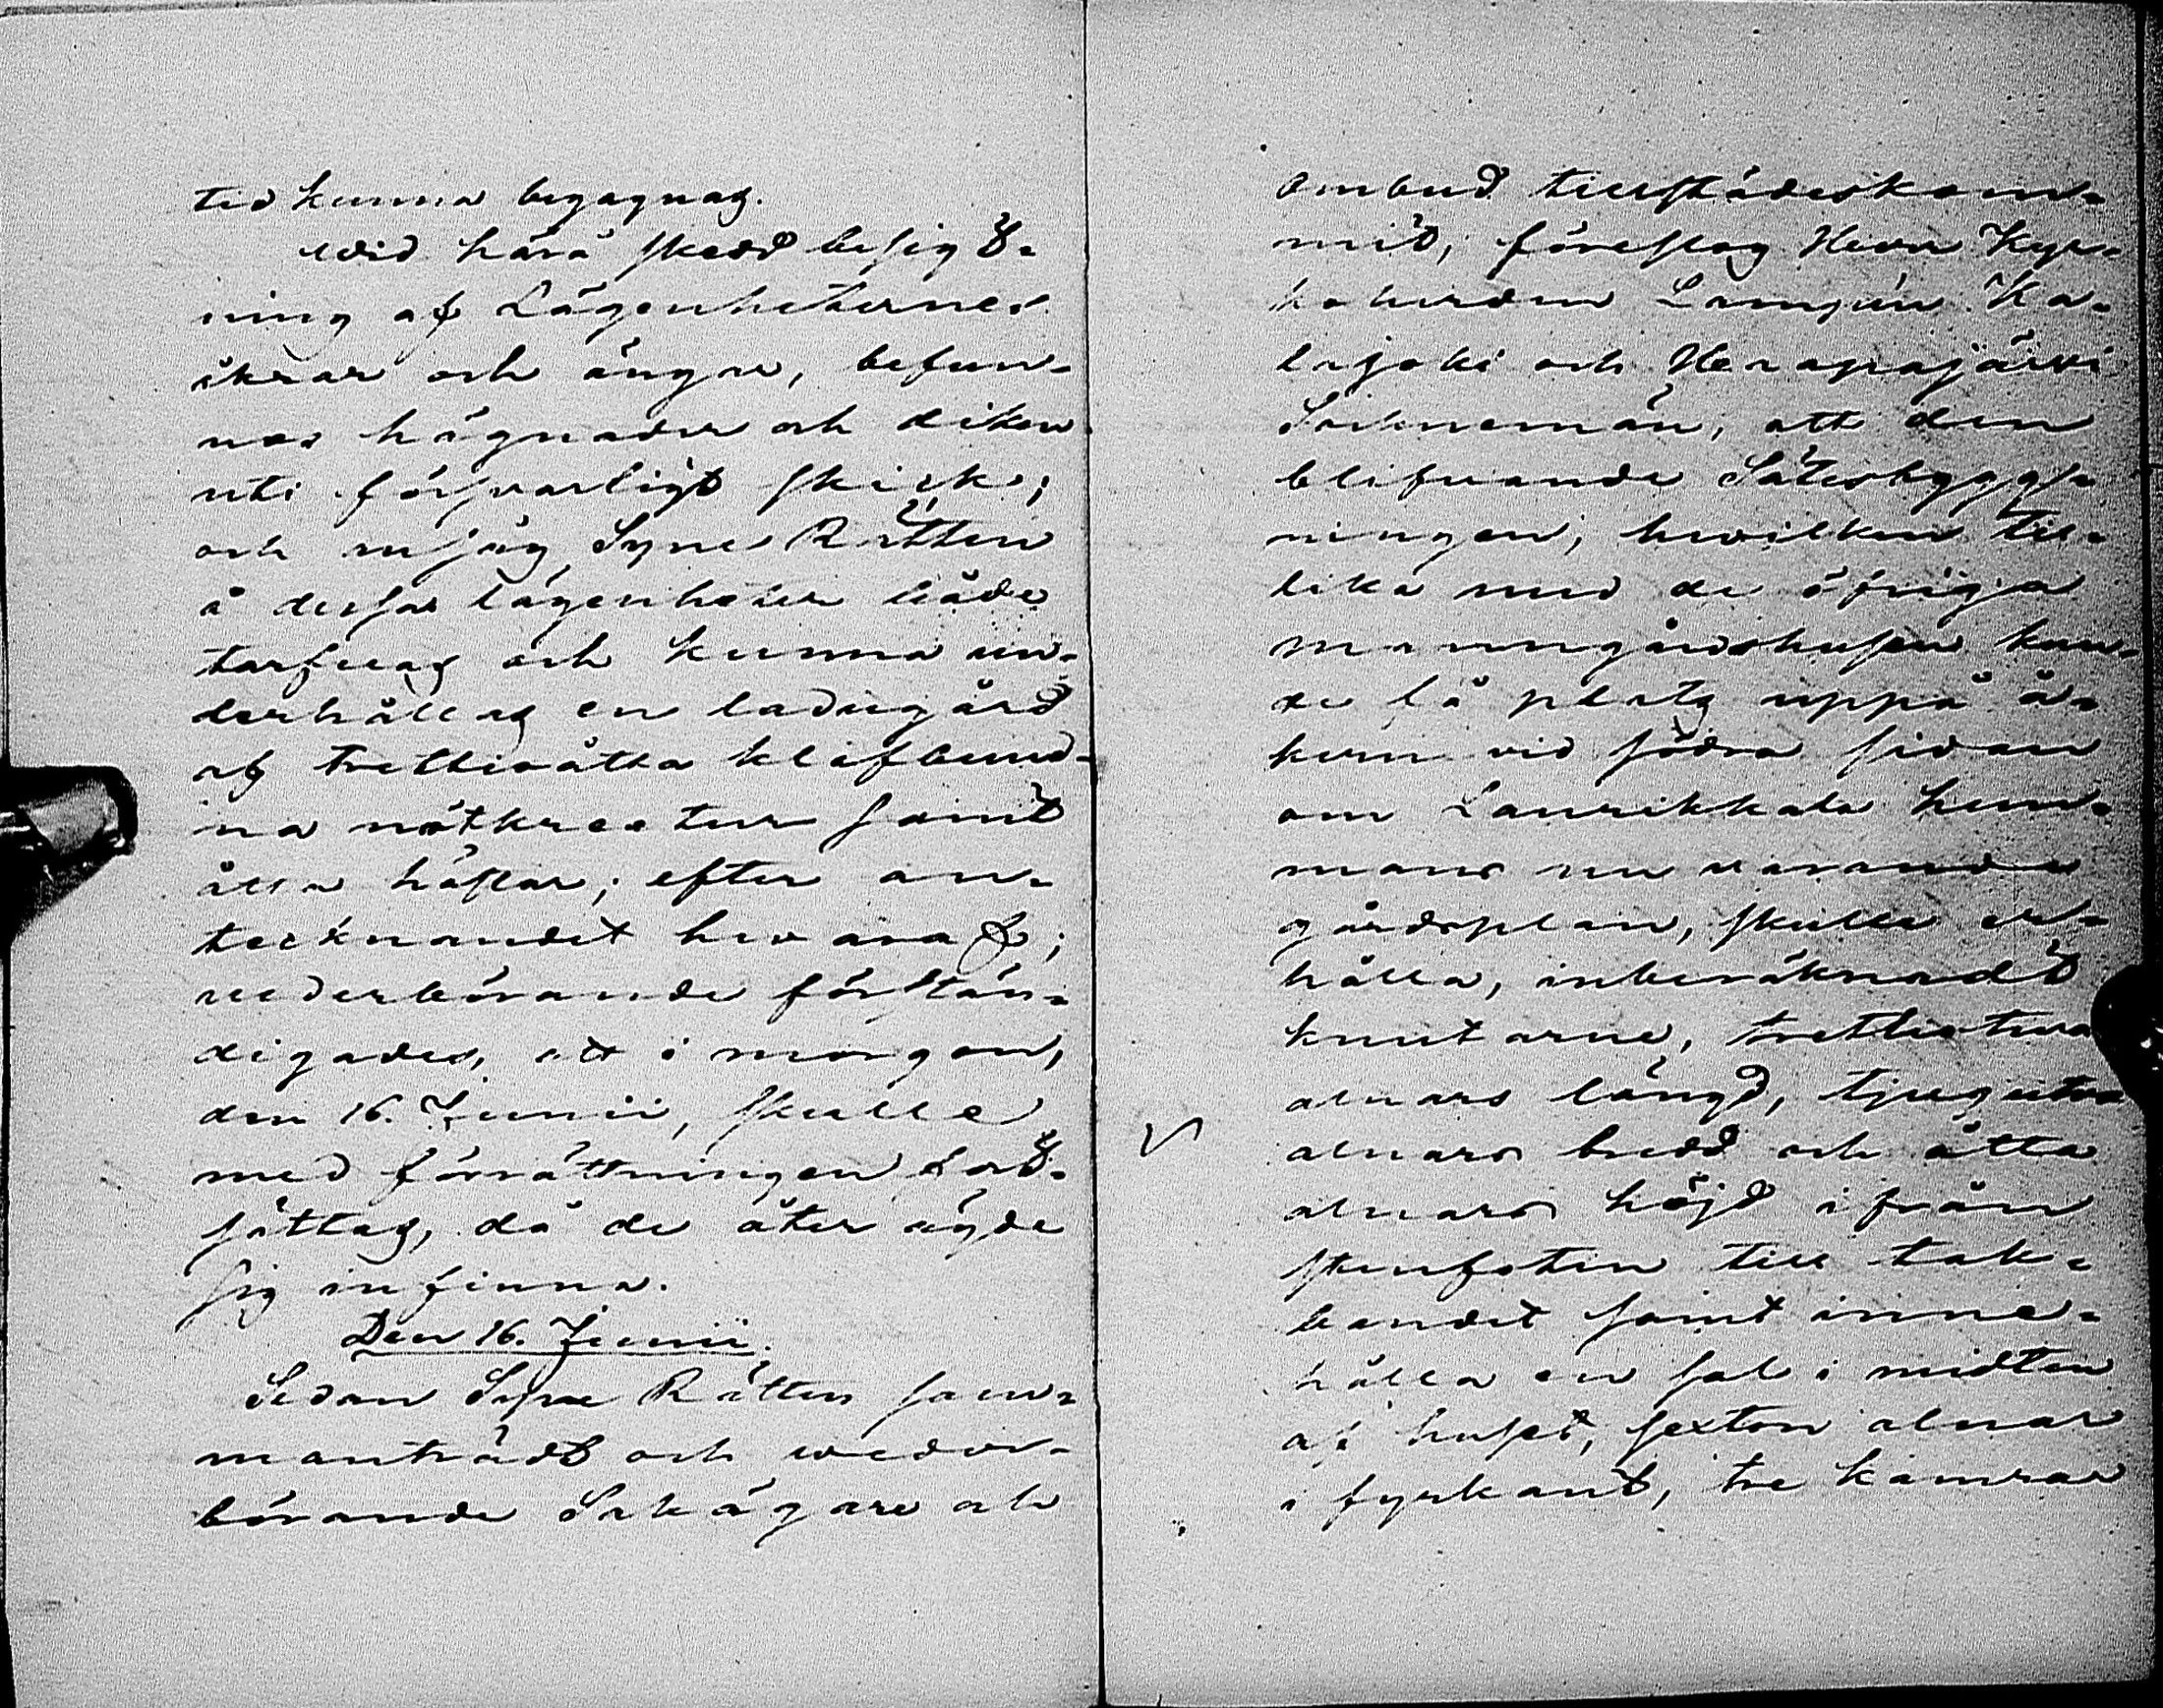 tid kunna begagnas.
Wid härå skedd besigt-
ning af Lägenheternes
åkrar och ängar, befun-
nos hägnader och diken
uti försvarligt skick;
och ansåg Syne Rätten
å dessa lägenheter både
tarfvas och kunna un-
derhållas en ladugård
af trettioåtta klafbund-
na nötkreatur samt
åtta hästar; efter an-
tecknandet hvaraf;
vederbörande förstän-
digades, att i morgon,
den 16. Junii, skulle
med förrättningen fort-
sättas, då de åter ägde
sig infinna.
Den 16. Junii.
Sedan Syne Rätten sam-
manträdt och weder-
börande Sakägare och
Ombud tillstädeskom-
mit, föreslog Herr Kyr-
koherden Ka-
lajoki och
Socknemän, att den
blifvande Sätesbygg-
ningen, hvilken til-
lika med de öfriga
manngårdshusen kun-
de få plats uppå å-
kern vid södra sidan
om Laurikkala hem-
mans nu varande
gårdsplan, skulle er-
hålla, inberäknadt
knutarne, trettiotvå
alnars längd, tjugutvå
alnars bredd och åtta
alnars höjd ifrån
stenfoten till tak-
bandet samt inne-
hålla en sal i midten
af huset, sexton alnar
i fyrkant, tre kamrar